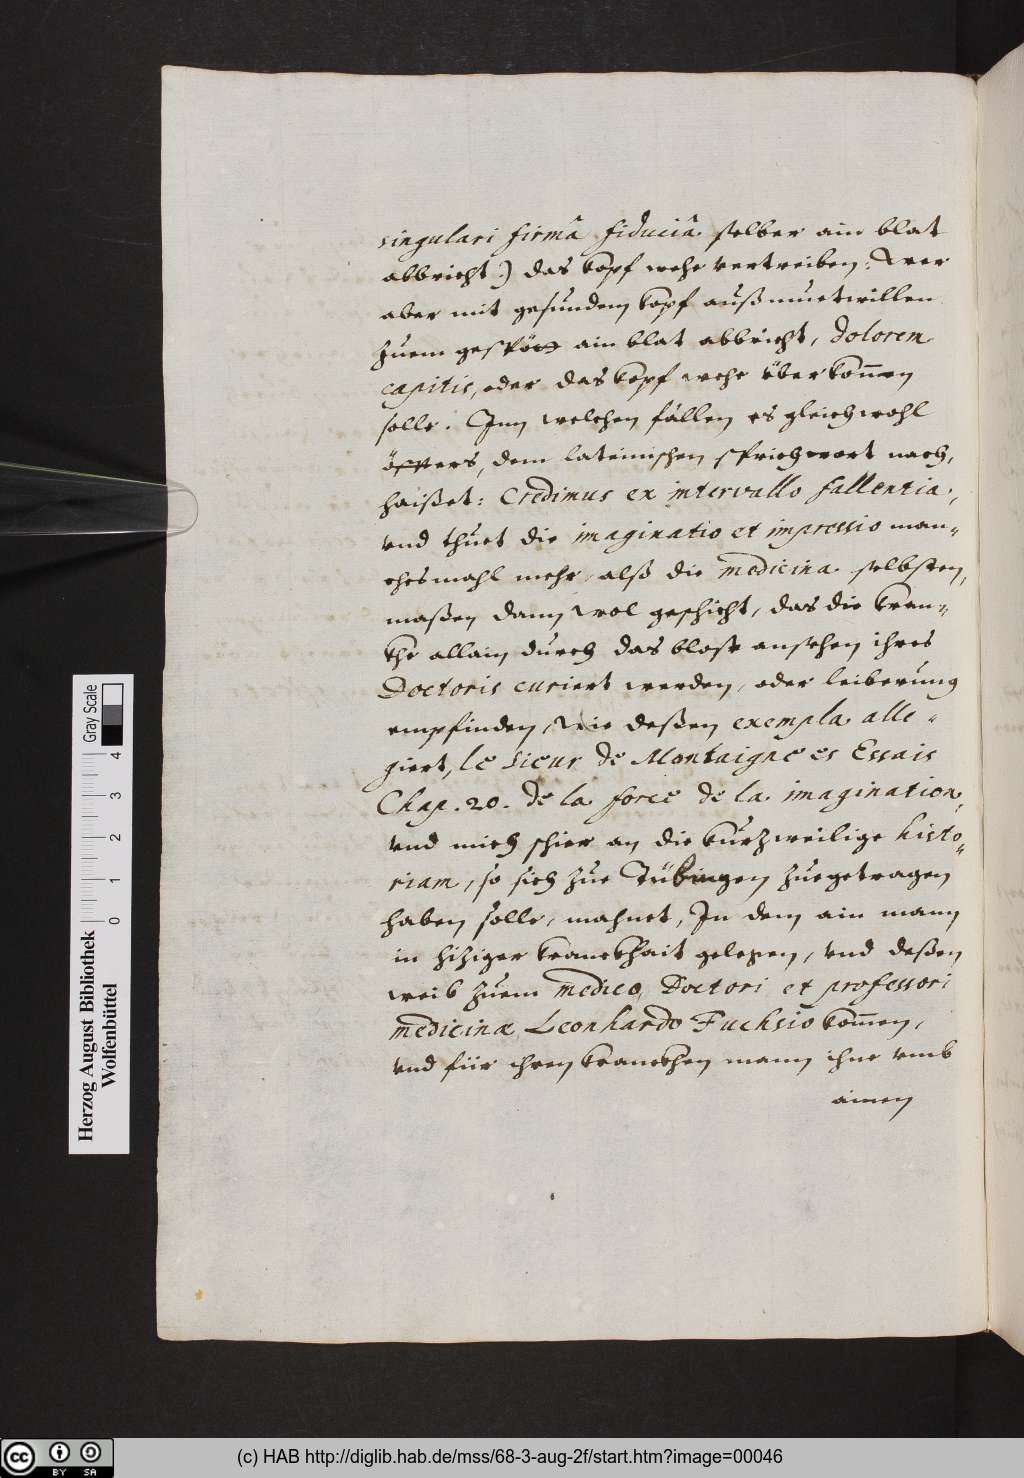 singulari firmâ fiduciâ selber ain blat
abbricht:) das kopf wehe vertreiben: Wer
aber mit gesundem kopf auß muetwillen
zuem gespött ain blat abbricht, dolorem
capitis, oder das kopf wehe überkom̄en
solle. Inn welchen fällen es gleichwohl
öffters, dem lateinischen sprichwort nach,
haißet: Credimus ex intervallo fallentia.,
vnd thuet die imaginatio et impressio man=
chesmahl mehr, alß die medicina selbsten,
maßen dann wol geschicht, das die kran=
khe allain durch das bloße ansehen ihres
Doctoris curiert werden, oder leiberung
empfinden, wie deßen exempla alle=
giert, le Sieur de Montaigne es Essais
Chap. 20. de la force de la imagination,
vnd mich schier an die kurzweilige histo=
riam, so sich zue Tübingen zuegetragen
haben solle, mahnet, In dem ain mann
in hiziger kranckhait gelegen, vnd deßen
weib zuem medico, Doctori et professori
medicinæ Leonhardo Fuchsio kom̄en,
vnd für ihren kranckhen mann ihne vmb
ainen
Herzog August Bibliothek
Wolfenbüttel
0 1 2 3 4
Gray Scale
cc BY SA
(c) HAB http://diglib.hab.de/mss/68-3-aug-2f/start.htm?image=00046